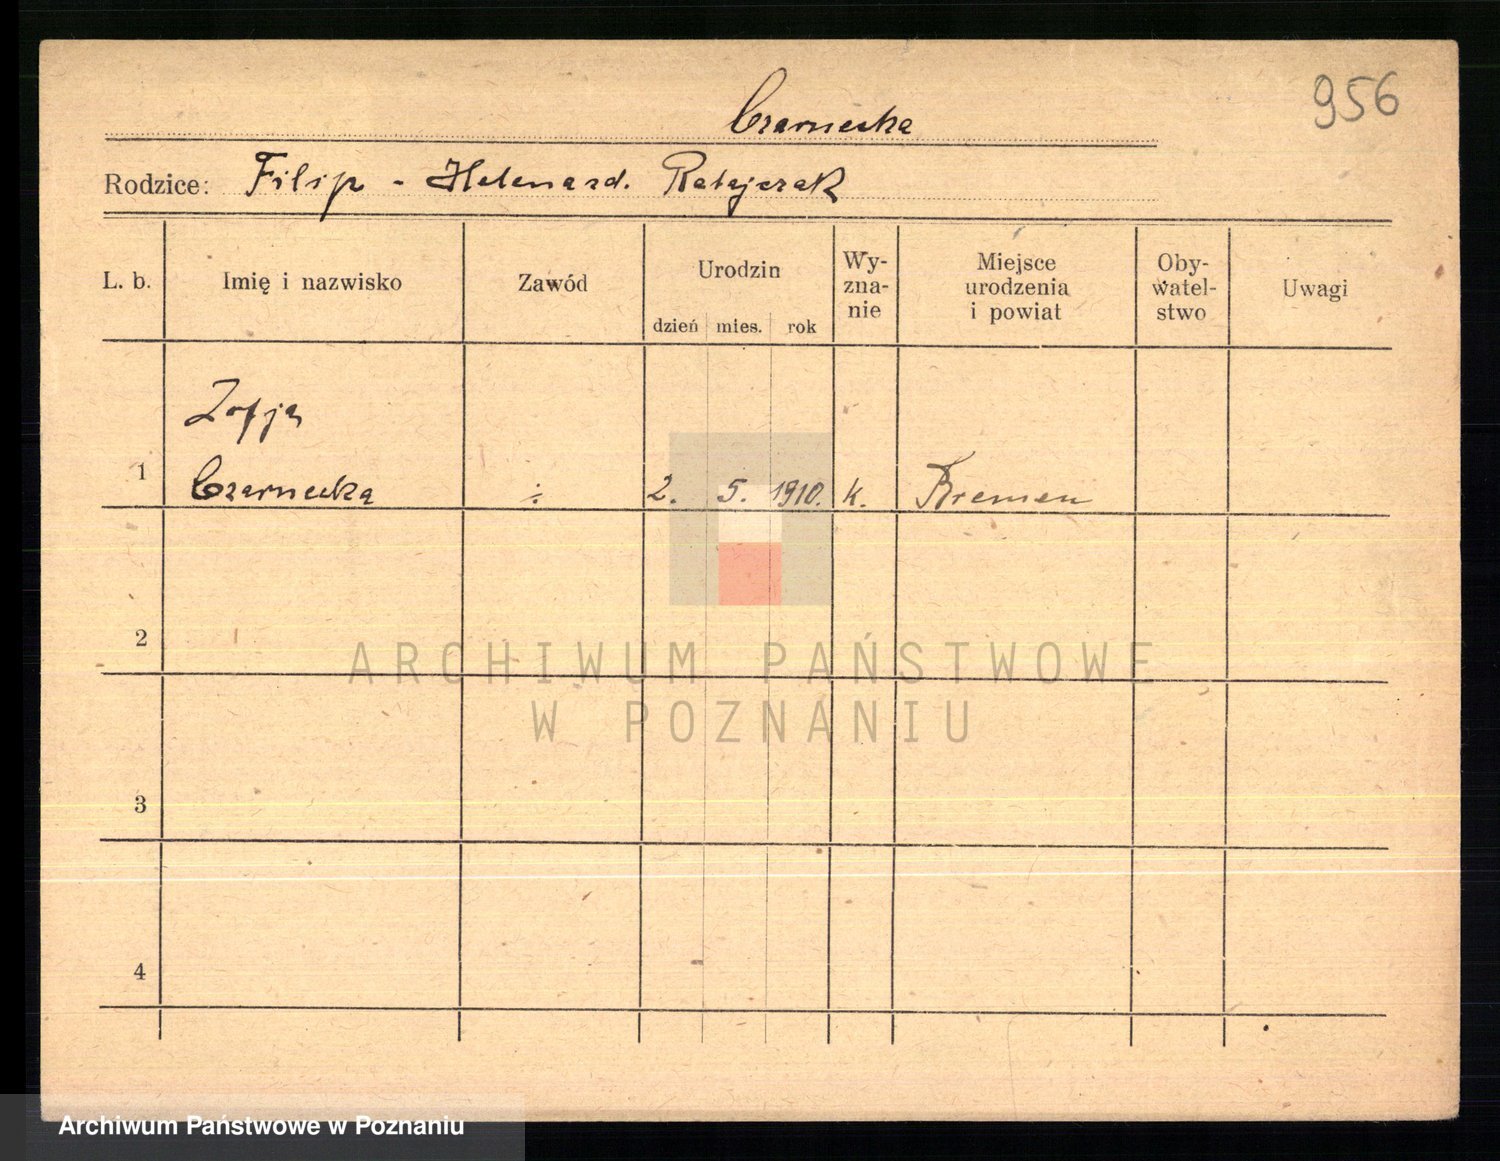 956
Czarnecka
Rodzice: Filip - Helena zd. Ratajczak
L. b. Imię i nazwisko Zawód Urodzin dzień mies. rok Wy-zna-nie Miejsce urodzenia i powiat Oby-watel-stwo Uwagi
Zofja
1 Czarnecka ÷ 2. 5. 1910. k. Bremen
2
ARCHIWUM PAŃSTWOWE
W POZNANIU
3
4
Archiwum Państwowe w Poznaniu